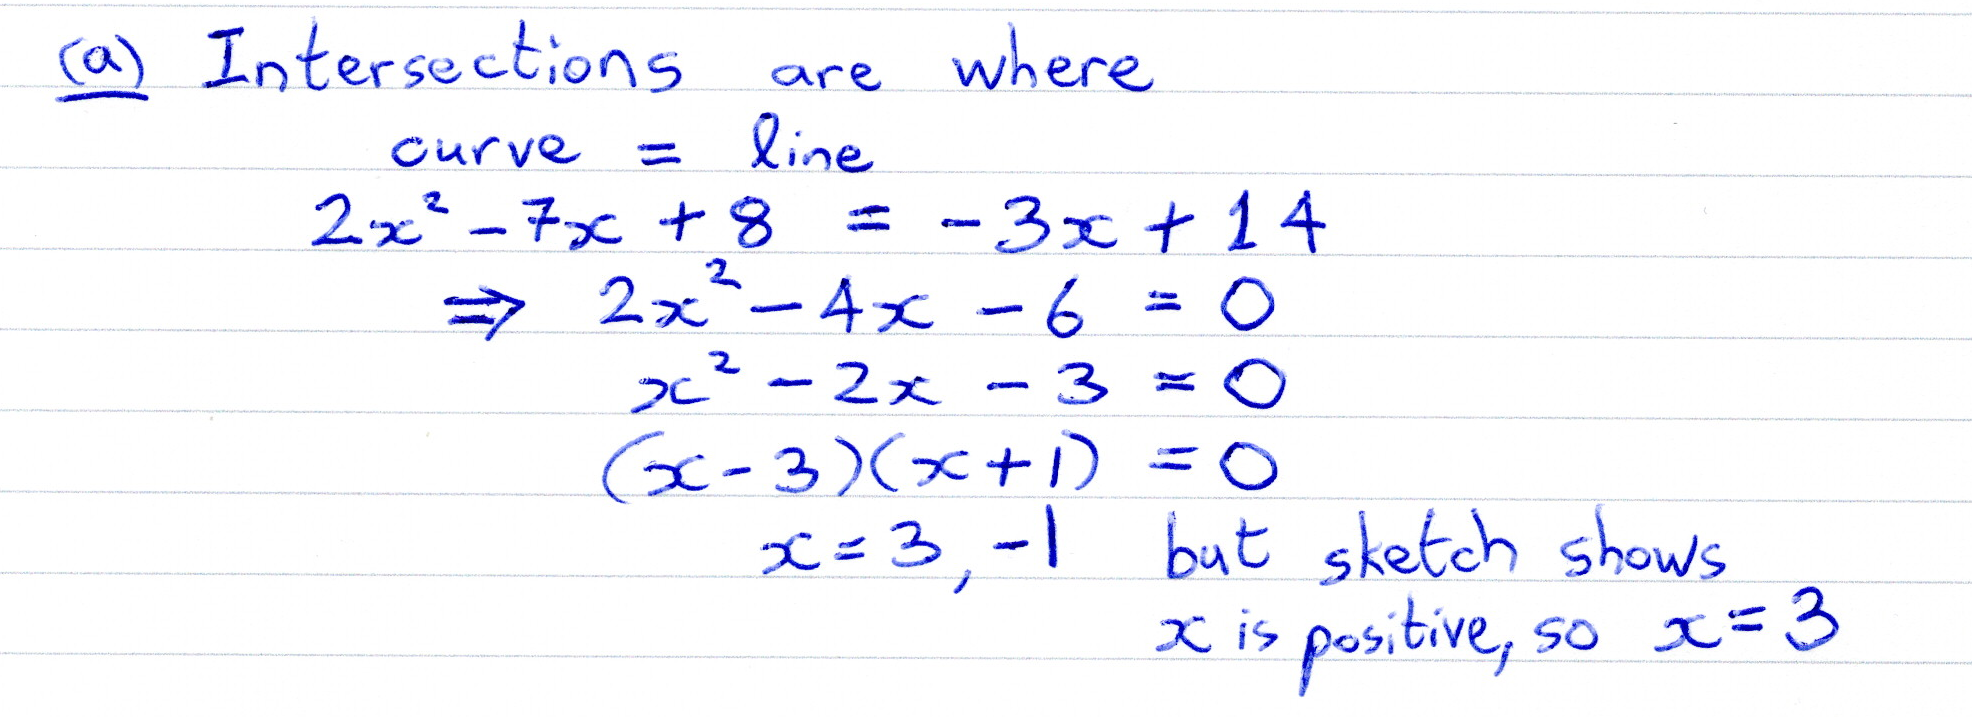 (a) Intersections are where
curve = line
2x² - 7x + 8 = -3x + 14
⇒ 2x² - 4x - 6 = 0
x² - 2x - 3 = 0
(x - 3)(x + 1) = 0
x = 3, -1 but sketch shows
x is positive, so x = 3